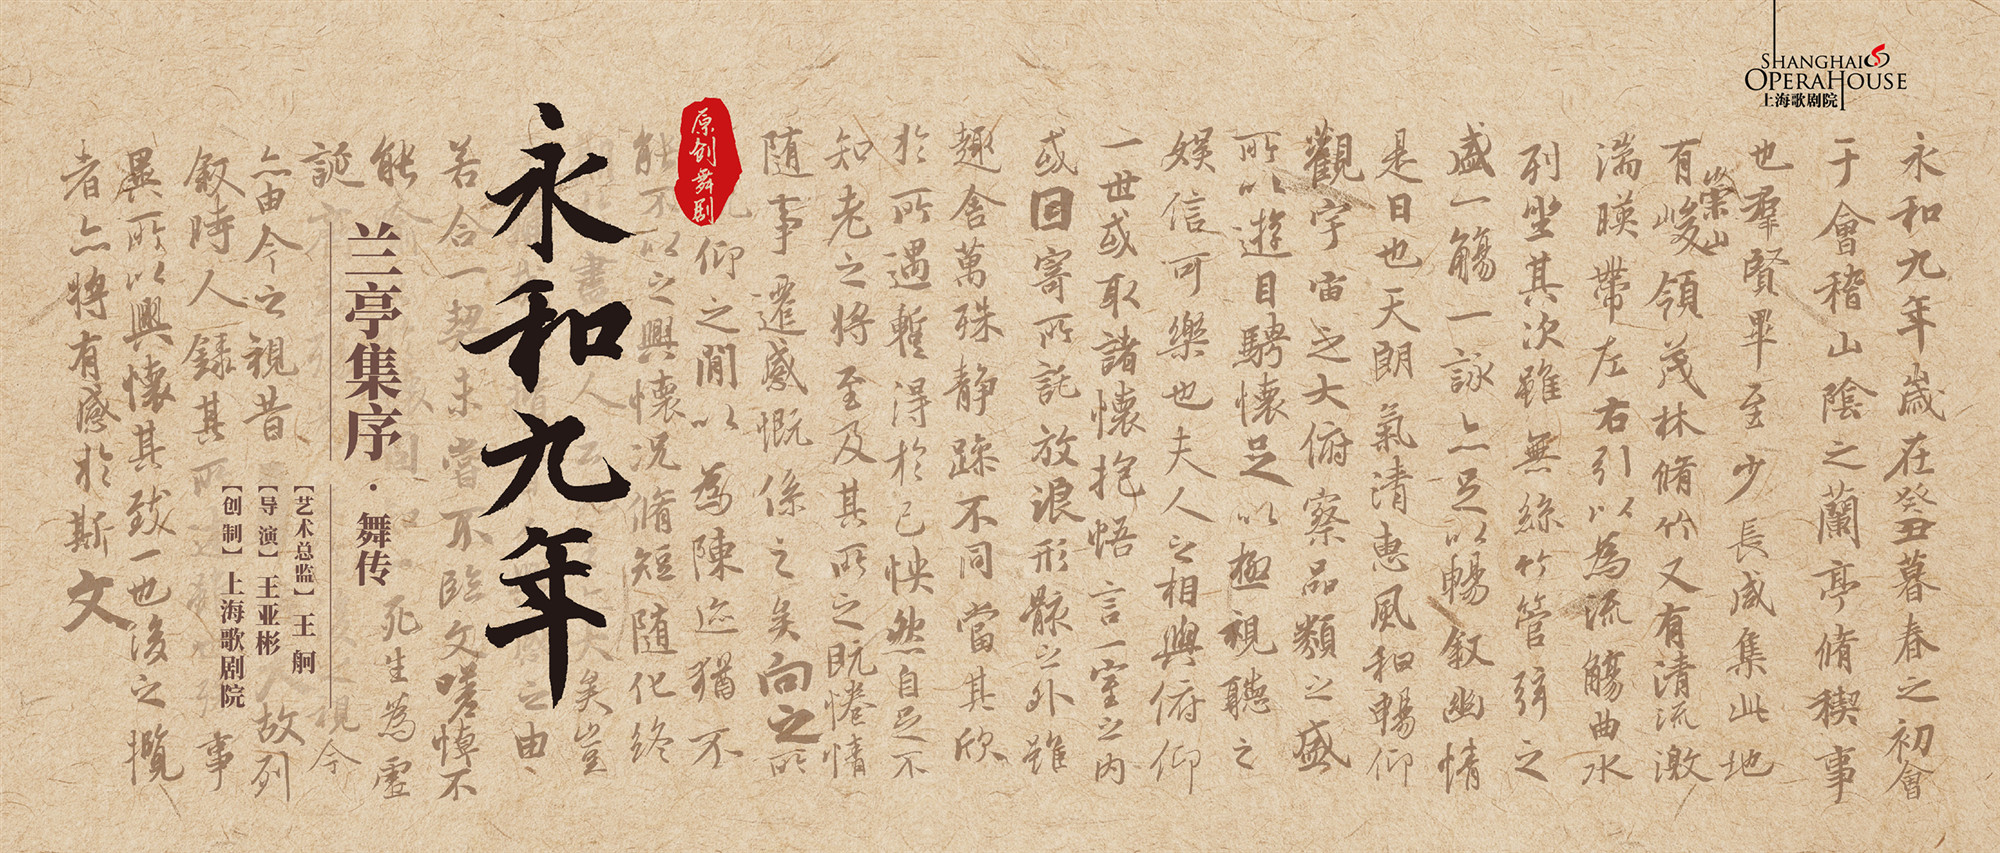 SHANGHAI
OPERAHOUSE
上海歌剧院
永和九年歲在癸丑暮春之初會
于會稽山陰之蘭亭脩稧事
也羣賢畢至少長咸集此地
有崇山峻領茂林脩竹又有清流激
湍暎帶左右引以為流觴曲水
列坐其次雖無絲竹管弦之
盛一觴一詠亦足以暢叙幽情
是日也天朗氣清惠風和暢仰
觀宇宙之大俯察品類之盛
所以遊目騁懷足以極視聽之
娛信可樂也夫人之相與俯仰
一世或取諸懷抱悟言一室之內
或因寄所託放浪形骸之外雖
趣舍萬殊靜躁不同當其欣
於所遇暫得於己怏然自足不
知老之將至及其所之既惓情
隨事遷感慨係之矣向之所
仰之間以為陳迹猶不
能不以之興懷況脩短隨化終
原创舞剧
永和九年
若合一契未嘗不臨文嗟悼不
兰亭集序·舞传
【艺术总监】王舸
【导演】王亚彬
【创制】上海歌剧院
死生為虛
亦由今之視昔
故列
叙時人錄其所
事
異所以興懷其致一也後之攬
者亦將有感於斯文